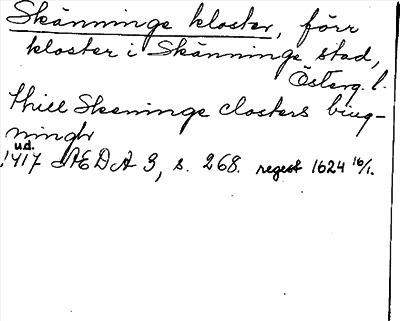 Skänninge kloster, förr
kloster i Skänninge stad,
Österg. l.
thill Skeninge closters biug-
ningh
u.d.
1417 ÆDA 3, s. 268. regest 1624 16/1.